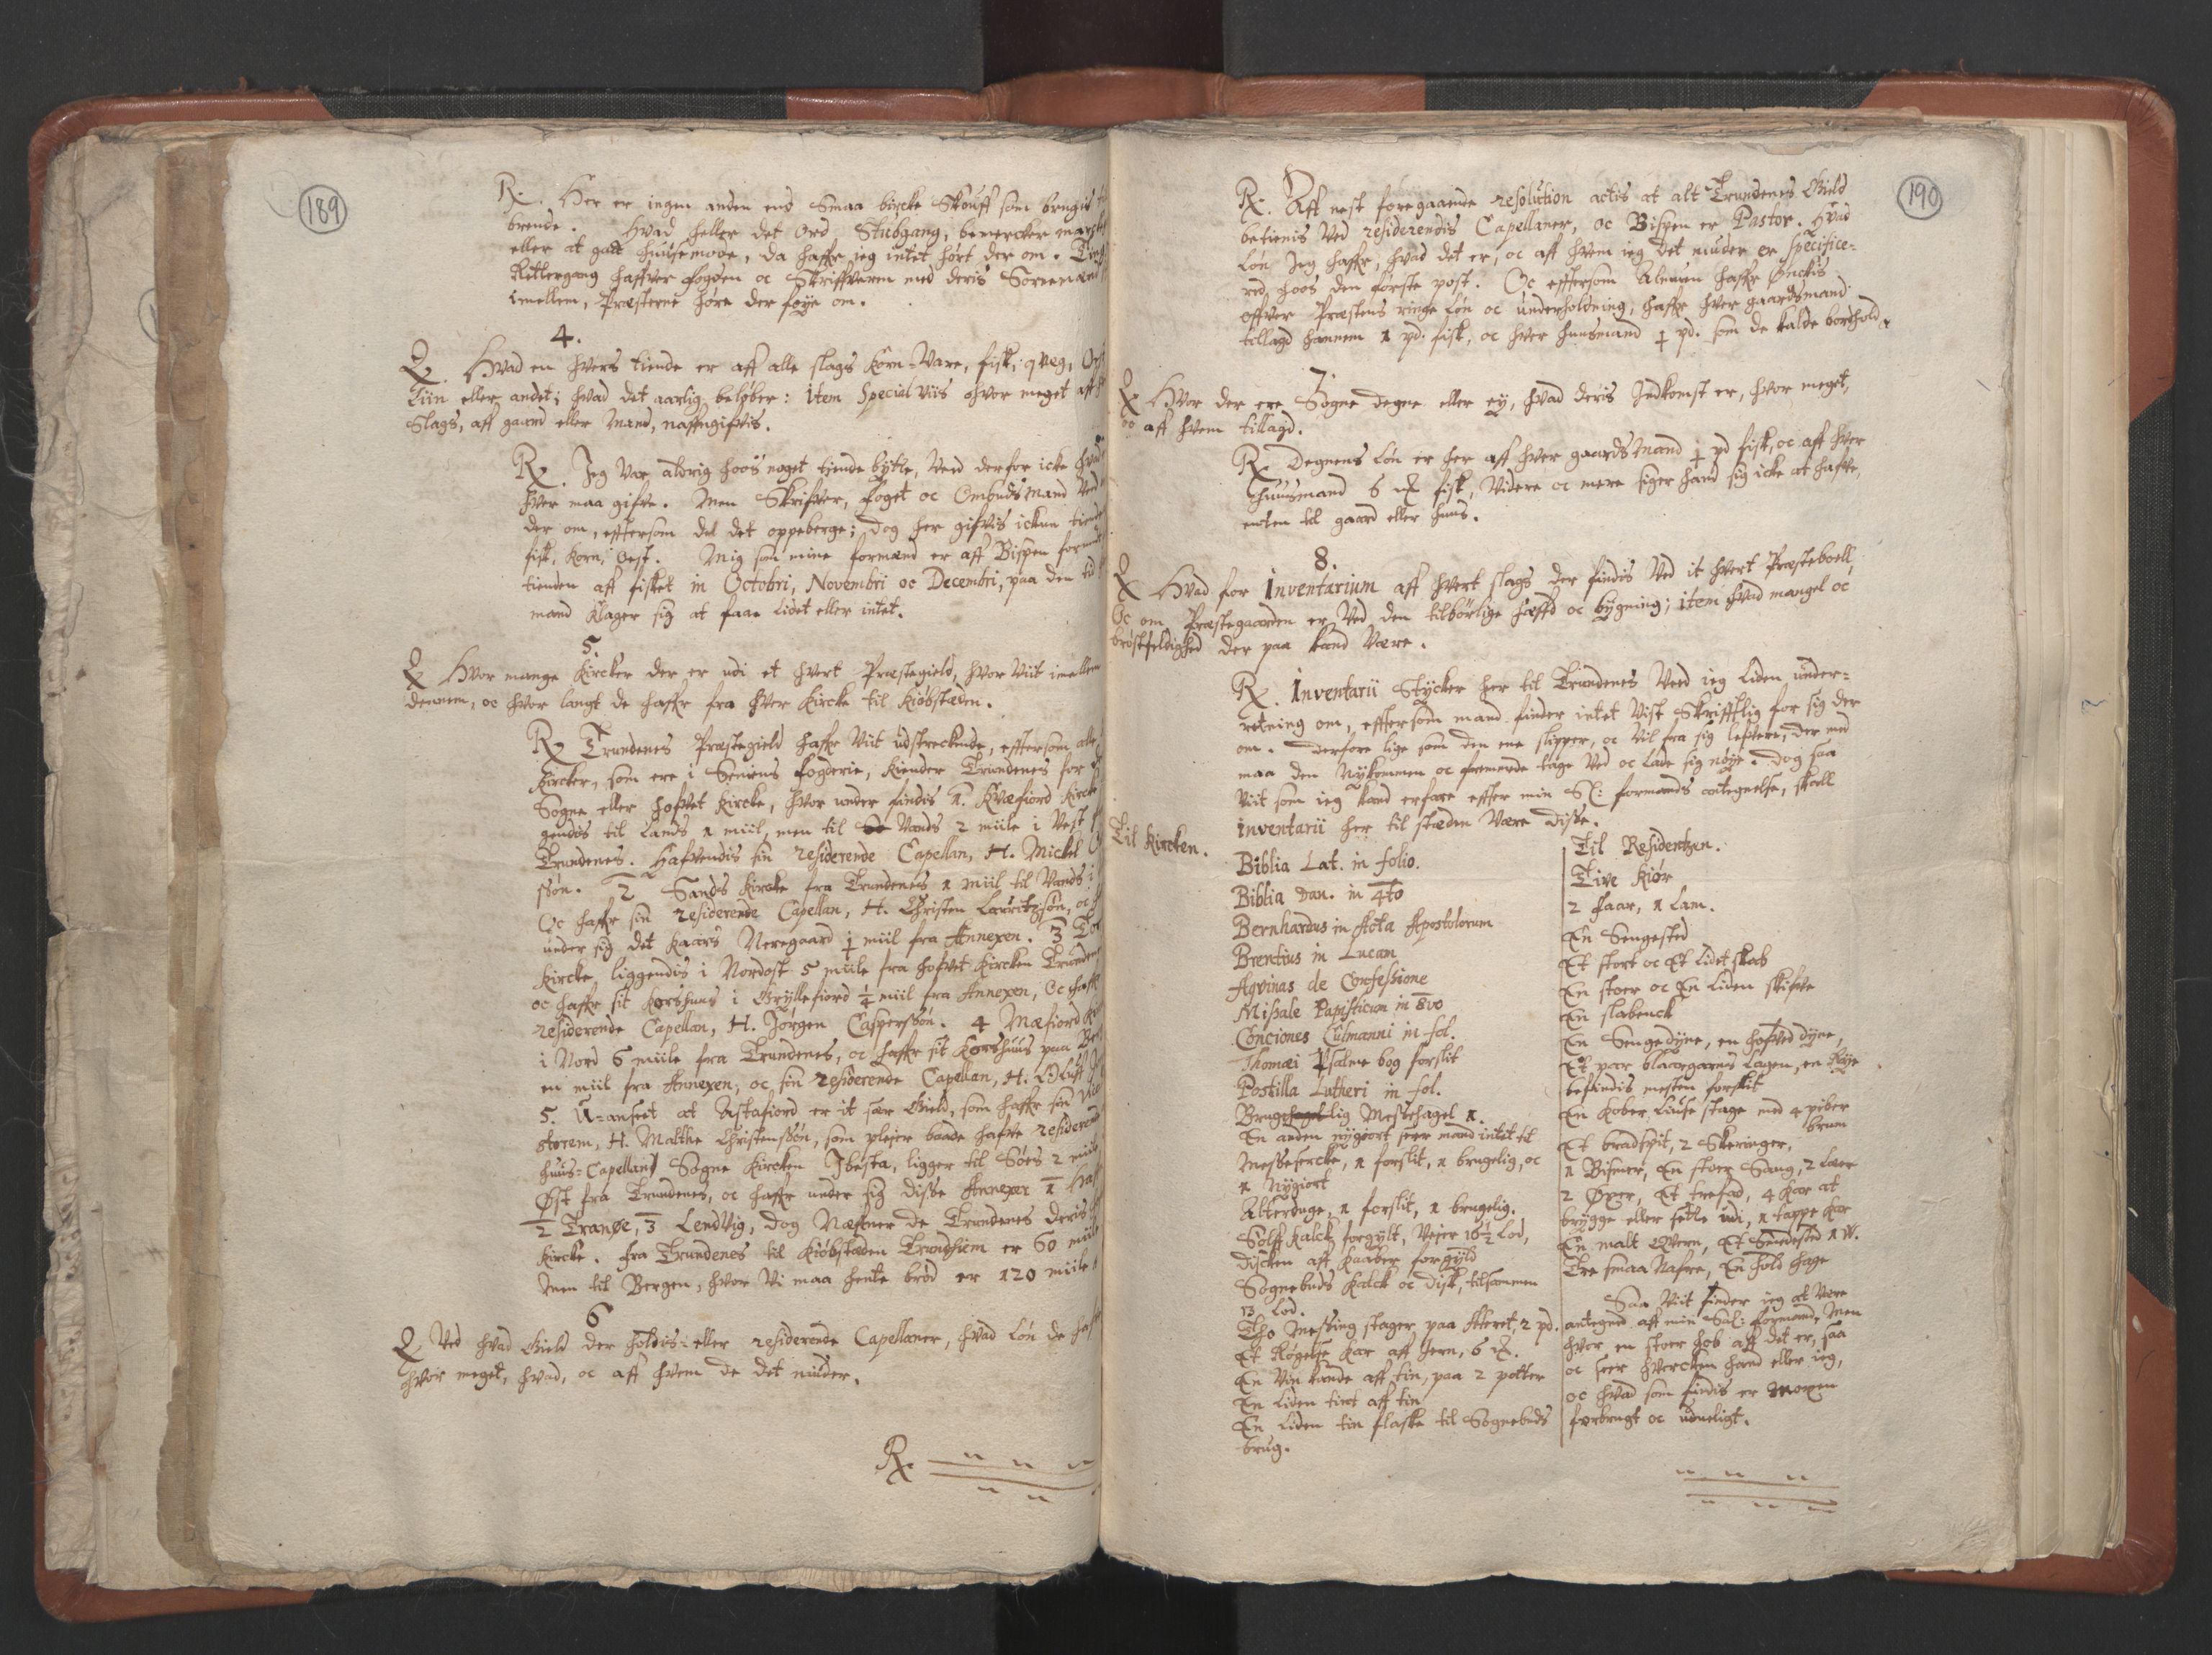 189
Rx. Her er ingen anden end Smaa bircke Skouff som brugis
brende. Hvad heller det Ord Stubgang, bemercker
eller at gaa huusemode, da haffr ieg intet hørt der om.
Rettergang haffver fogden oc Skriffveren med deris Sorenmænd
imellem, Præsterne høre der føye om.
4.
Q. Hvad en hvers tiende er aff alle slags Korn-Vare, fisk, qveg, Ost
Tiin eller andet; hvad det aarlig beløber: Item Special viis hvor meget aff
Slags, aff gaard eller Mand, naffngifvis.
Rx. Jeg var aldrig hoos noget tiende bytte, veed derfor icke
hver maa gifve. Men Skrifver, foget oc Ombudsmand
der om, efftersom de det oppeberge; dog her gifvis ickun tiende
fisk, Korn, Oest. Mig som mine formænd er aff Bispen
tienden aff fisket in Octobri, Novembri oc Decembri, paa den tid
mand klager sig at faae lidet eller intet.
5.
Q Hvor mange Kircker der er udi et hvert Præstegield, hvor viit imellem
dennem, oc hvor langt de haffr fra hver Kircke til Kiøbstæden.
Rx Trundenes Præstegield haffr viit udstreckende, efftersom alle
Kircker, som ere i Seniens fogderie, kiender Trundenes for
Sogne eller hofvet Kircke, hvor under findis 1. Kvæfiord Kircke
gendis til Lands 1 miil, men til Vands 2 miile i Vest
Trundenes. Hafvendis sin residerende Capellan, H. Mickel
søn. 2 Sands Kircke fra Trundenes 1 miil til Vands i
Oc haffr sin residerende Capellan, H. Christen Lauritzsøn, oc
under sig det Kaars Neregaard ½ miil fra Annexen. 3
Kircke liggendis i Nordost 5 miile fra hofvet Kircken Trundenes
oc haffr sit Korshuus i Gryllefiord ¼ miil fra Annexen, Oc haffr
residerende Capellan, H. Jørgen Casperssøn. 4 Mæfiord
i Nord 6 miile fra Trundenes, oc haffr sit Korshuus paa
en miil fra Annexen, oc sin residerende Capellan, H.
5. U-anseet at Astafiord er it sær Gield, som haffr sin
storem, H. Malthe Christenssøn, som plejer baade hafve residerende
huus-Capellan) Sogne Kircken Ibesta, ligger til Søes 2 miil
Øst fra Trundenes, oc haffr under sig disse Annexer 1
2 Tranøe, 3 Lendvig, dog Næffner de Trundenes deris
Kircke. fra Trundenes til Kiøbstæden Trundhiem er 60 miile
Men til Bergen, hvor vi maa hente brød er 120 miile
6
Q Ved hvad Gield der holdis eller residerende Capellaner, hvad Løn de haffr
hvor meget, hvad, oc aff hvem de det niuder.
Rx.
190
Rx. Aff nest foregaaende resolution actis at alt Trundenes Gield
betienis Ved residerendis Capellaner, oc Bispen er Pastor. Hvad
Løn Jeg haffr, hvad det er, oc aff hvem ieg det niuder er specifice-
red hoos den første post. Oc efftersom Almuen haffr Ønckis
offver Præstens ringe Løn oc underholdning, haffr hver gaardsmand
tillagd hannem 1 pd. fisk, oc hver huusmand ½ pd. som de kalde bordhold.
7.
Q Hvor der ere Sogne degne eller ey, hvad deris Indkomst er, hvor meget,
oc aff hvem tillagd.
Rx Degnens Løn er her aff hver gaardsMand ½ pd fisk, oc aff hver
huusmand 6 fisk, Videre oc mere siger hand sig icke at hafve,
enten til gaard eller huus.
8.
Q Hvad for Inventarium aff hvert slags der findis Ved it hvert Præsteboell,
Oc om Præstegaarden er Ved den tilbørlige hæffd oc bygning; item hvad mangel oc
brøstfeldighed der paa kand Være.
Rx. Inventarii Stycker her til Trundenes Veed ieg Liden under-
retning om, efftersom mand finder intet Vist Skrifftlig for sig der
om. Derfore lige som den ene slipper, oc Vil fra sig lefvere, der med
maa den Nykommen oc fremmede tage Ved oc lade sig nøye. Dog saa
Viit som ieg kand erfare effter min Sl: formands antegnelse, skall
inventarii her til stæden Være disse.
Til Kircken.
Biblia Lat. in folio.
Biblia Dan. in 4to
Bernhardus in Acta Apostolorum
Brentius in Lucan
Aqvinas de Confessione
Missale Papisticum in 8vo
Conciones Culmanni in fol.
Thomæi Psalme bog forslit
Postilla Lutheri in fol.
Brugelig Messehagel 1.
En anden nygiort seer mand intet til
Messesercke, 1 forslit, 1 brugelig, oc
1 Nygiort
Alterduge, 1 forslit, 1 brugelig.
Sølff Kalck forgylt, Vejer 16½ Lod,
Discken aff Kaaber forgyld
Sognebuds Kalck oc Disk, tilsammen
13 Lod.
Tho Messing stager paa Alteret, 2 pd.
Et Røgelse Kar aff Jern, 6
En Vin kande aff tin, paa 2 potter
En Liden tint aff tin
En Liden tin flaske til Sognebuds
brug.
Til Residentzen.
Tive Kiør
2 faar, 1 Lam.
En Sengested
Et stort oc Et Lidet skab
En stoer oc En Liden skifve
En slabenck
En Sengedyne, en hofveddyne,
Et par blaargarns Lagen, en Rye
befindis mesten forslit
En Kober Liuse stage med 4 piber
brun
Et bradspit, 2 Skeringer,
1 Bismer, En stoer Sang, 2 Læer
2 Øxer, Et trefad, 4 Kar at
brygge eller sette udi, 1 tappe Kar
En malt Qvern, Et Smedested 1 W.
Tre smaa Nafre, En hold hage
Saa Viit finder ieg at Være
antegned aff min Sal: formand, Men
hvor en stoer hob aff det er, saa
oc seer hvercken hand eller ieg,
oc hvad som findis er Moxen
forbrugt oc udueligt.